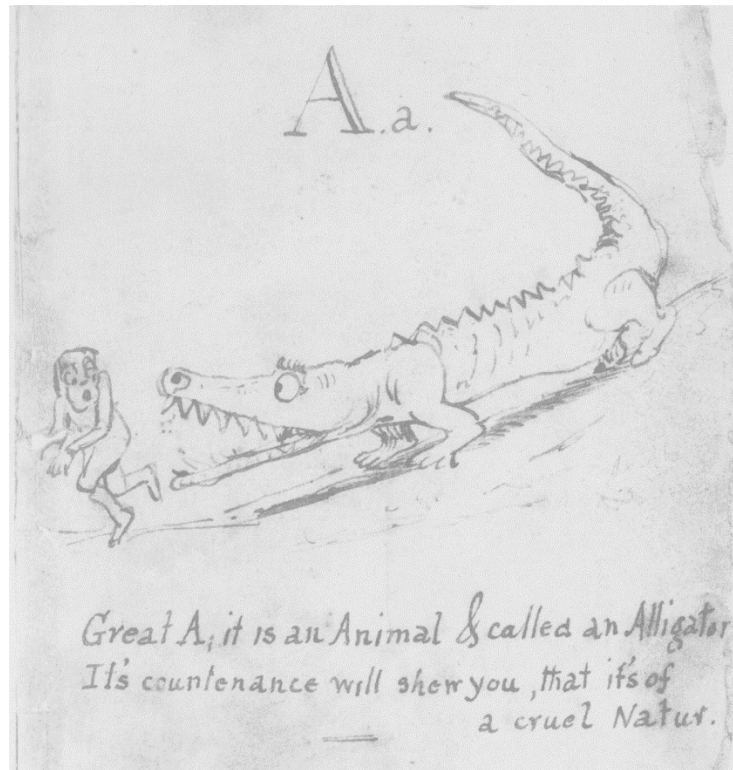 A.a.
Great A, it is an Animal & called an Alligator
It's countenance will shew you, that it's of
a cruel Natur.